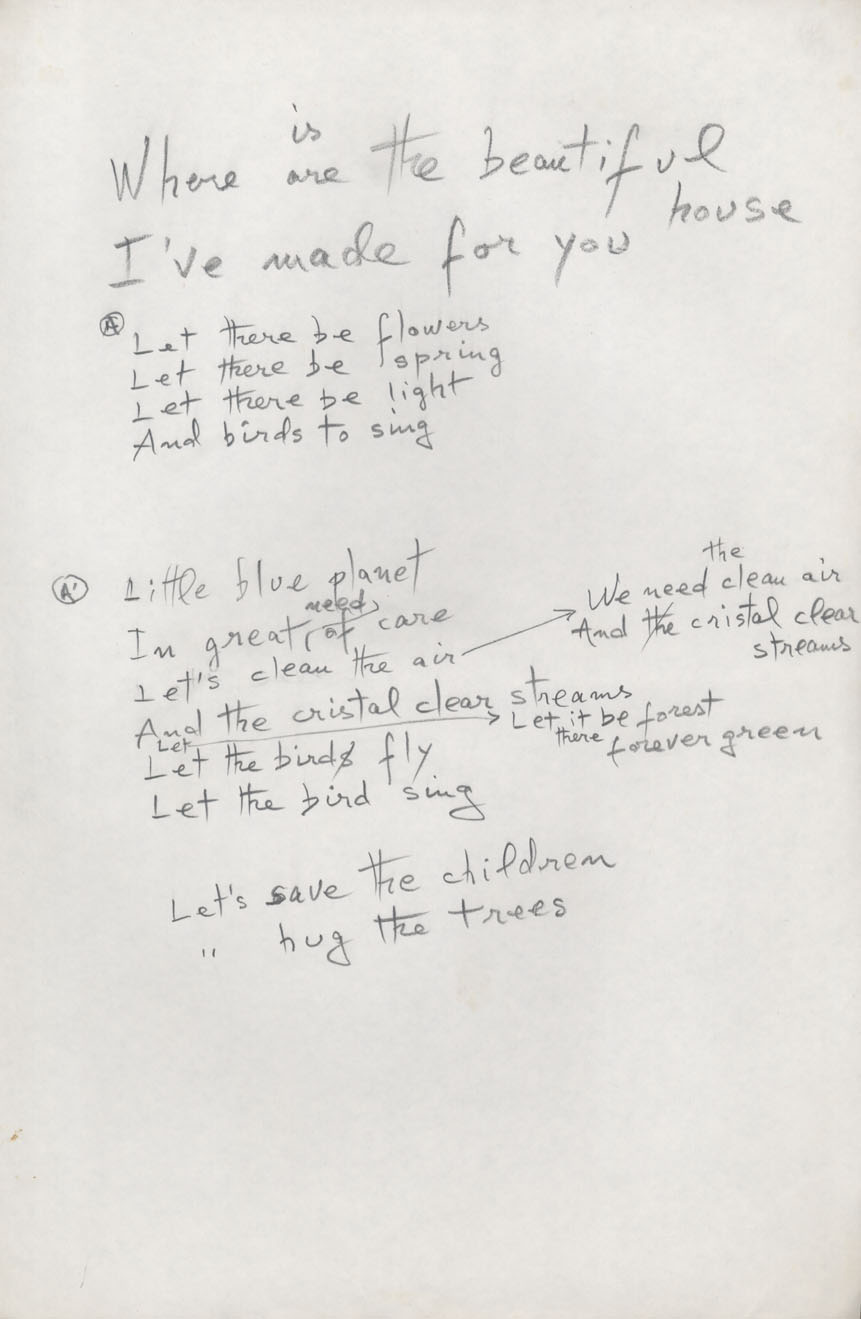 is
Where are the beautiful
house
I've made for you
A
Let there be flowers
Let there be spring
Let there be light
And birds to sing
A' Little blue planet
need
In great (of) care
Let's clean the air
the
We need clean air
And the cristal clear
streams
And the cristal clear streams
Let
Let it be forest
there forever green
Let the birds fly
Let the bird sing
Let's save the children
" hug the trees